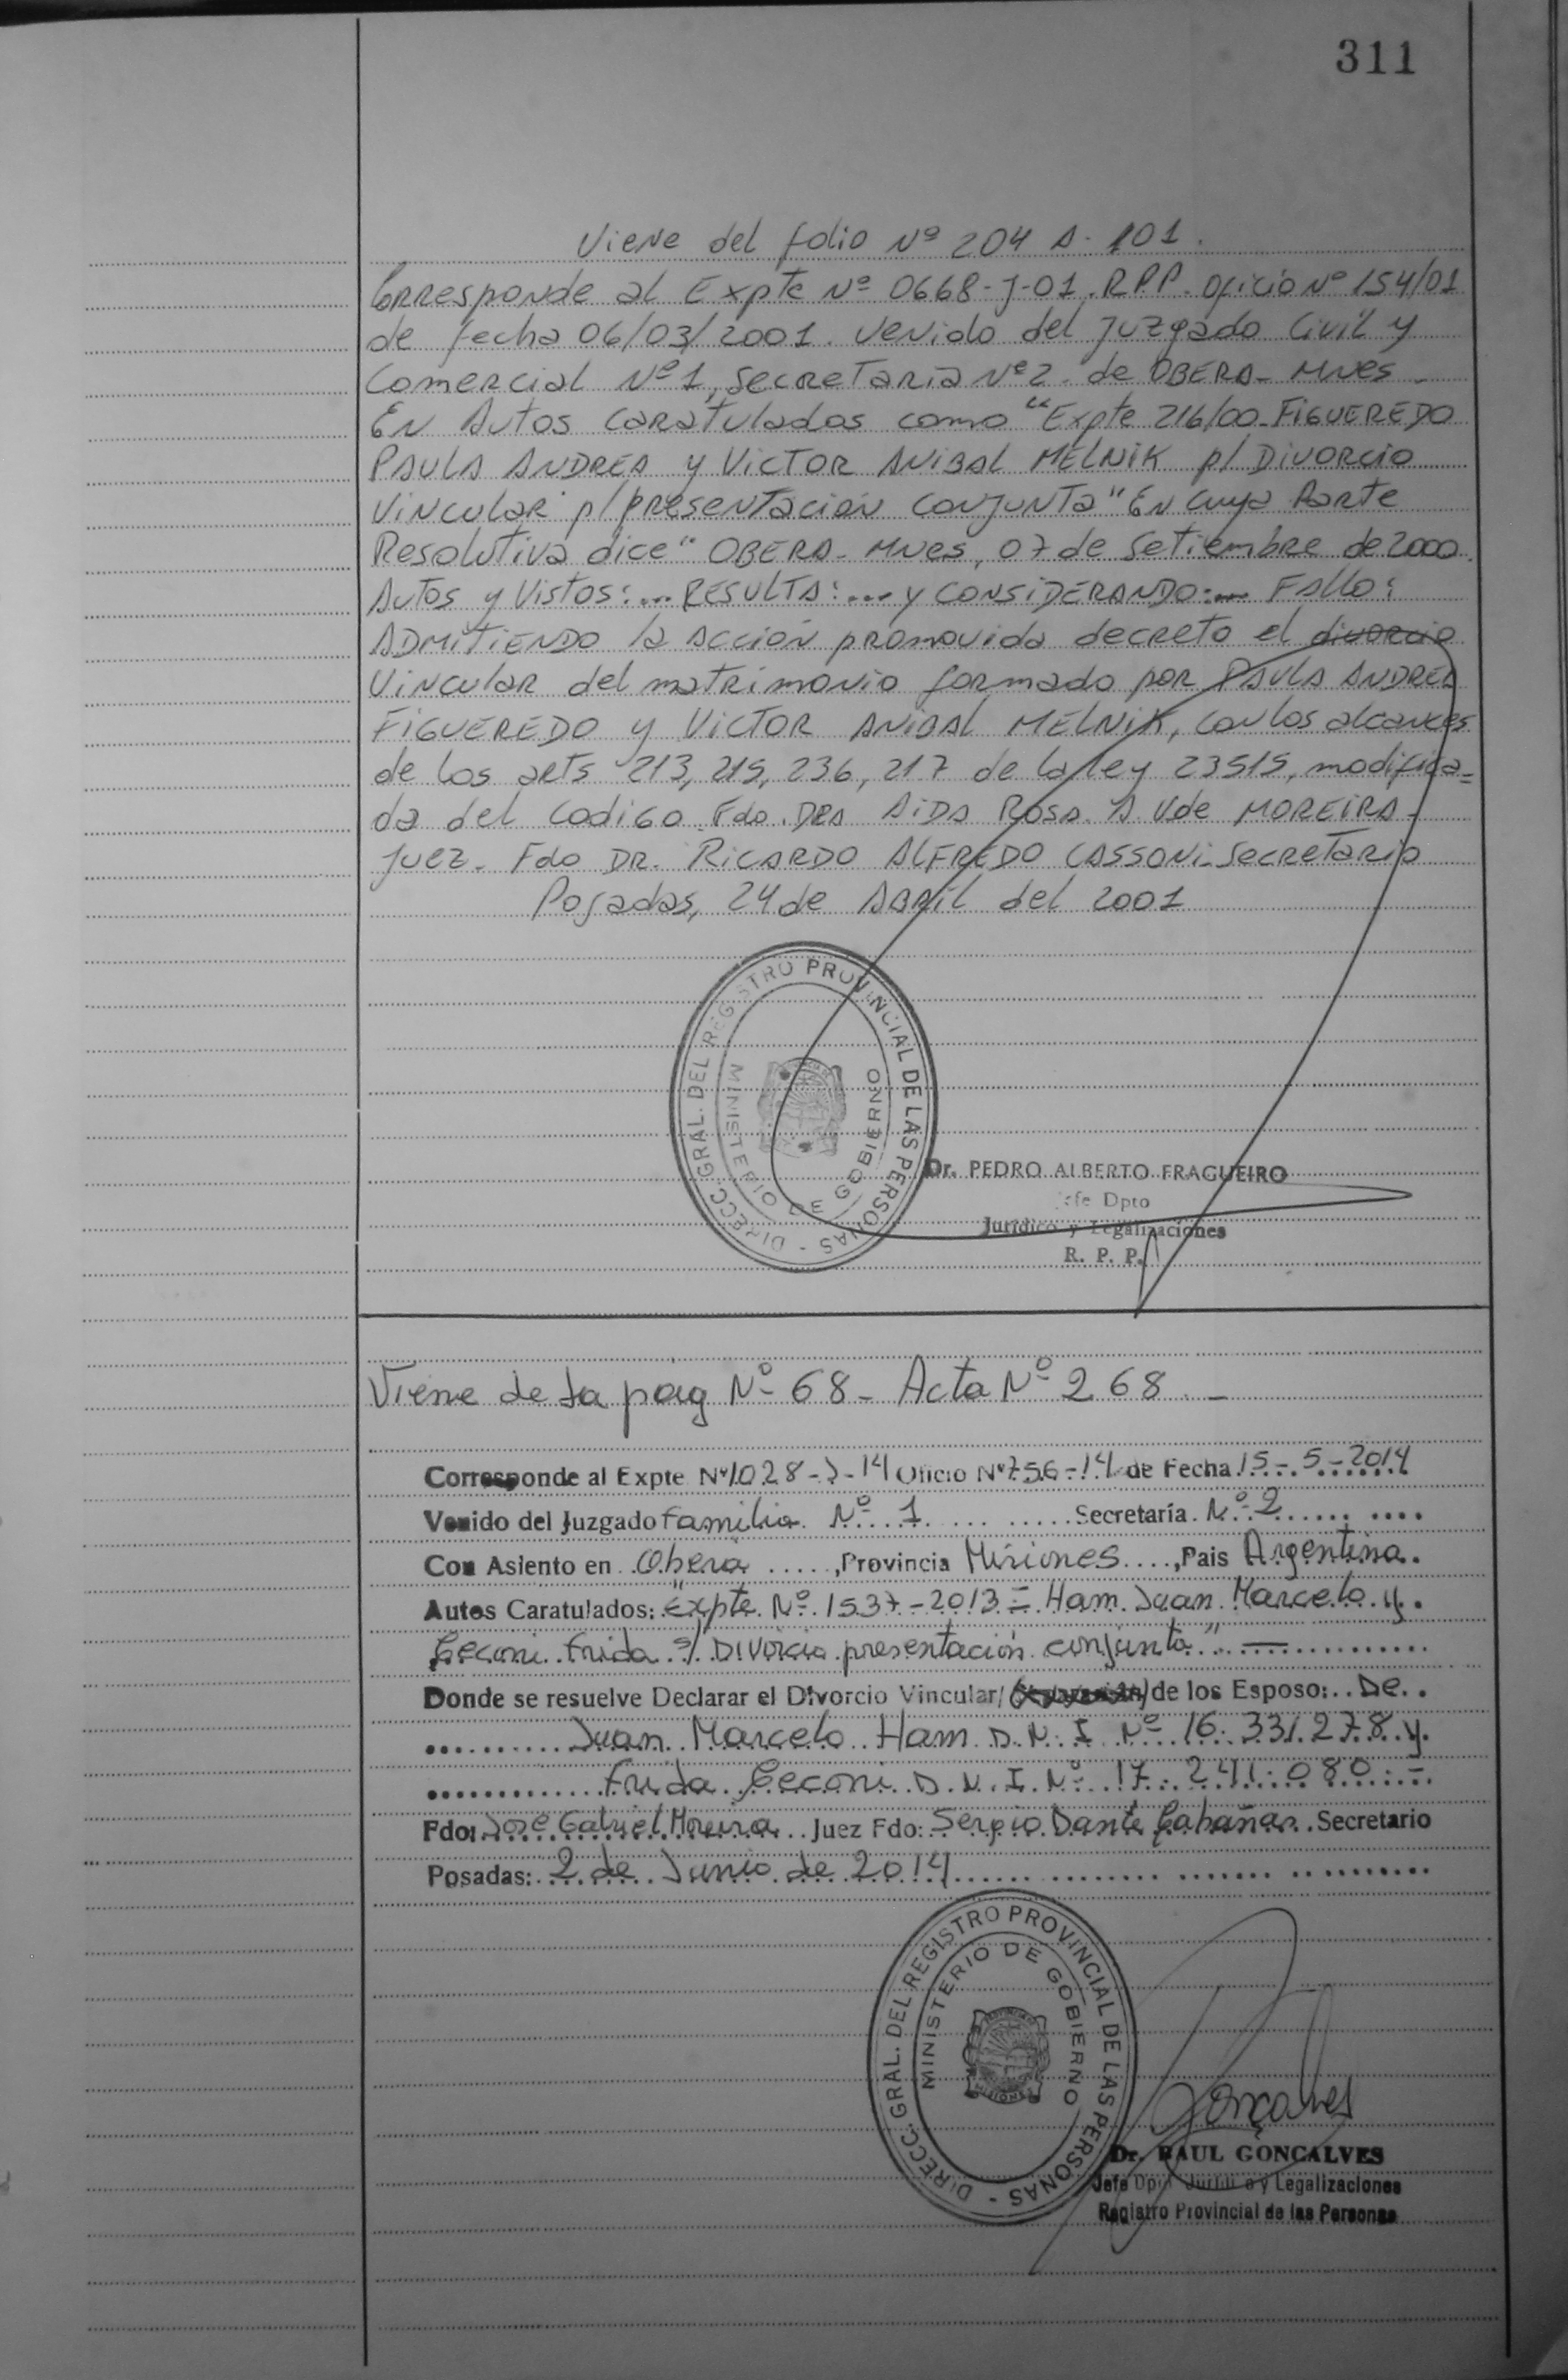 311
Viene del folio Nº 204 A. 101.
Corresponde al Expte Nº 0668-J-01. R.P.P. Oficio Nº 154/01
de fecha 06/03/2001. Venido del Juzgado Civil y
Comercial Nº 1, Secretaria Nº 2. de OBERA - Mnes -
En Autos caratulados como "Expte 216/00. FIGUEREDO
PAULA ANDREA y VICTOR ANIBAL MELNIK p/ DIVORCIO
Vincular p/presentación conjunta" En cuya Parte
Resolutiva dice" OBERA - Mnes, 07 de Setiembre de 2000.
Autos y Vistos:... RESULTA:... y CONSIDERANDO:... FALLO:
ADMITIENDO la acción promovida decreto el divorcio
Vincular del matrimonio formado por PAULA ANDREA
FIGUEREDO y VICTOR ANIBAL MELNIK, con los alcances
de los arts 213, 215, 236, 217 de la ley 23515, modifica=
da del Codigo. Fdo. DRA AIDA ROSA. A Vde MOREIRA -
Juez. Fdo DR. RICARDO ALFREDO CASSONI - Secretario
Posadas, 24 de Abril del 2001
DIRECC. GRAL. DEL REGISTRO PROVINCIAL DE LAS PERSONAS -
MINISTERIO DE GOBIERNO
Dr. PEDRO ALBERTO FRAGUEIRO
Jefe Dpto
Jurídico y Legalizaciones
R. P. P.
Viene de la pág Nº 68 - Acta Nº 268. -
Corresponde al Expte Nº 1028-J-14 Oficio Nº 756-14 de Fecha 15-5-2014
Venido del Juzgado Familia Nº 1 Secretaría Nº 2
Con Asiento en Oberá, Provincia Misiones, Pais Argentina.
Autos Caratulados: "Expte Nº 1537-2013 = Ham Juan Marcelo y
Ceconi Frida s/ Divorcio presentación conjunta" -
Donde se resuelve Declarar el Divorcio Vincular/ de los Esposo: De
Juan Marcelo Ham D.N.I Nº 16.331.278 y
Frida Ceconi D.N.I. Nº 17.241.080.-
Fdo: José Gabriel Moreira Juez Fdo: Sergio Dante Cabañas Secretario
Posadas: 2 de Junio de 2014
DIRECC. GRAL. DEL REGISTRO PROVINCIAL DE LAS PERSONAS -
MINISTERIO DE GOBIERNO
PROVINCIA DE
MISIONES
Gonçalves
Dr. RAUL GONCALVES
Jefe Dpto Jurídico y Legalizaciones
Registro Provincial de las Personas